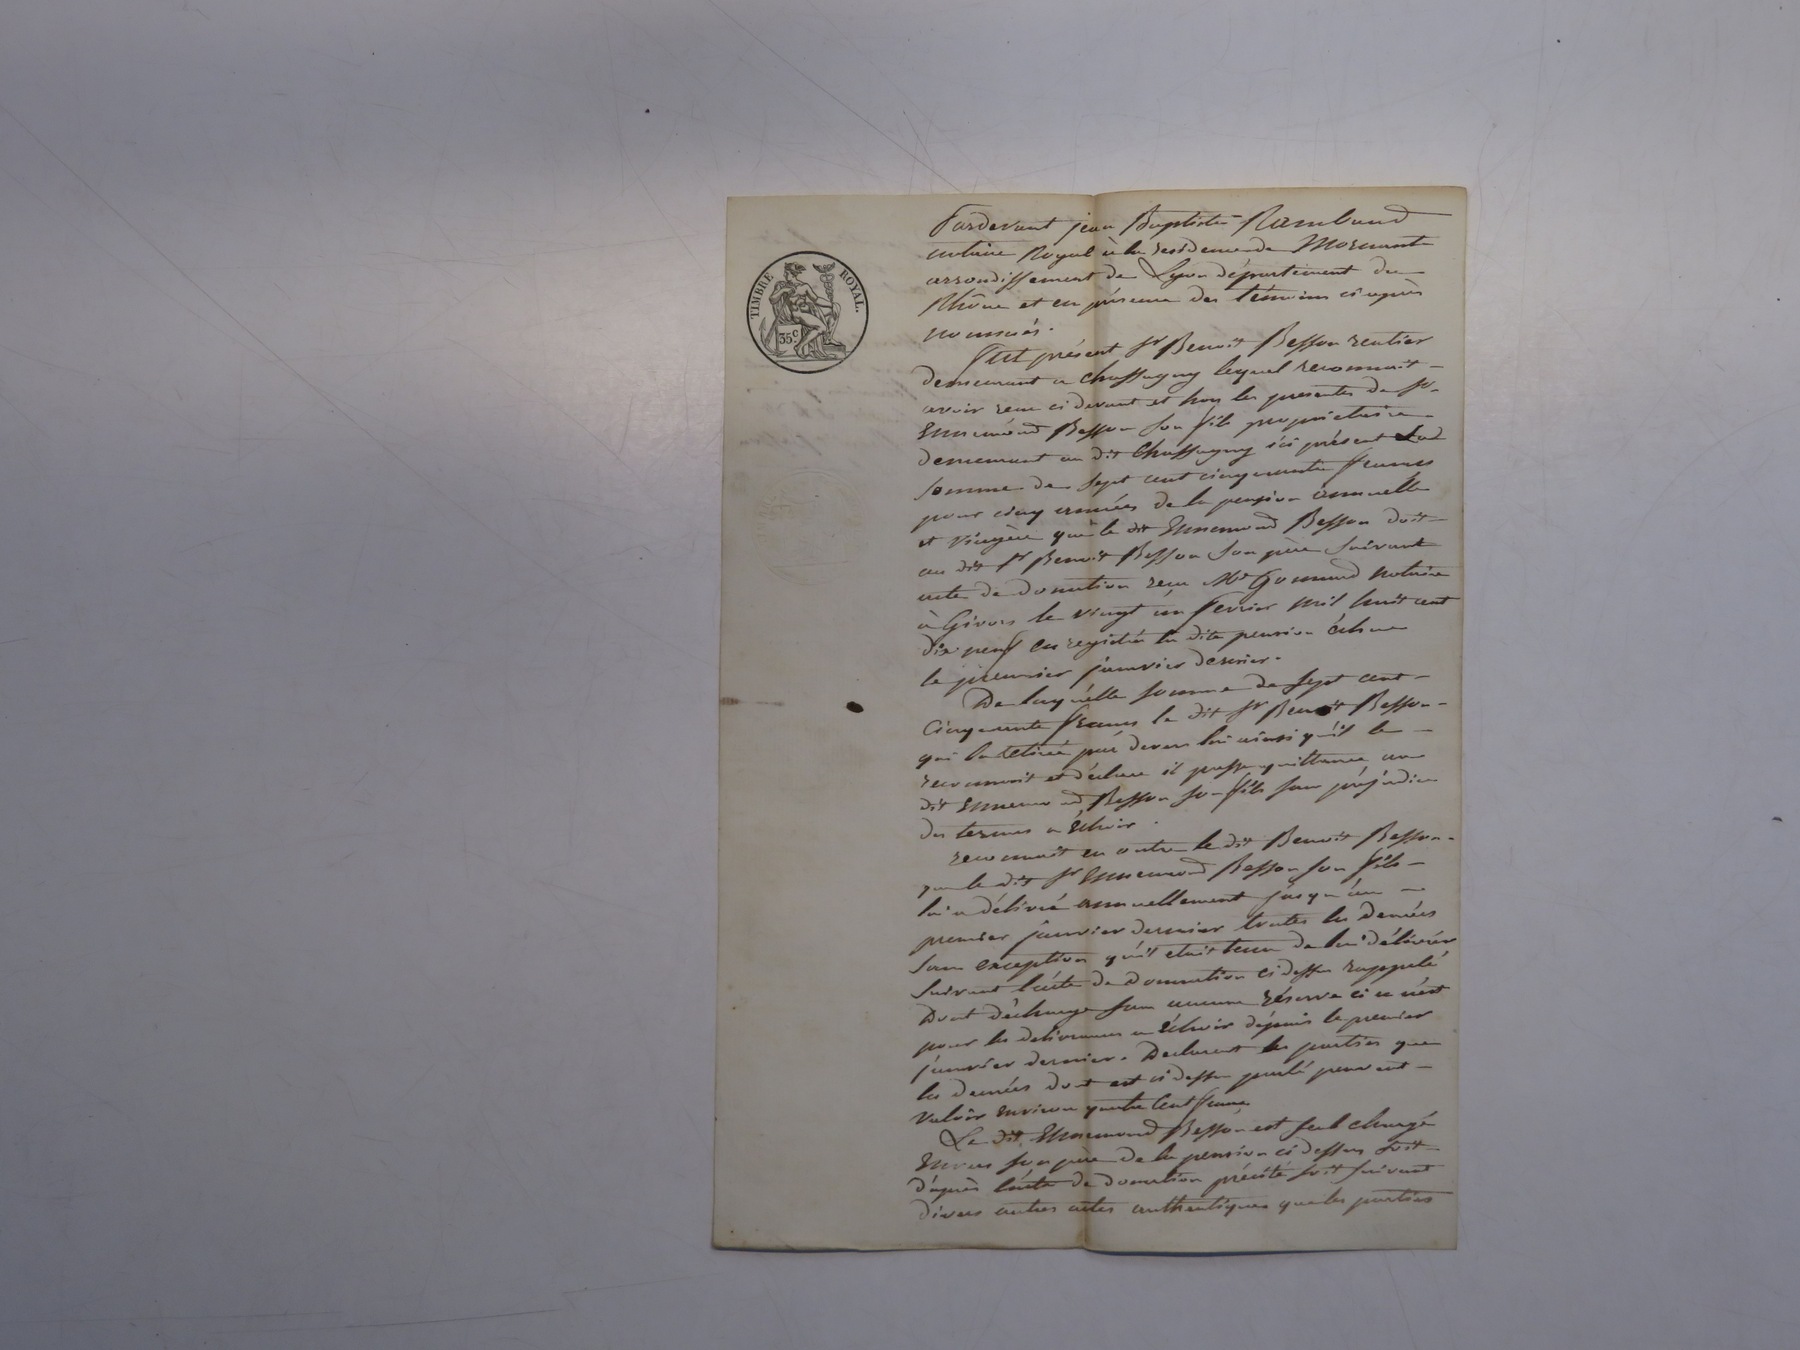 TIMBRE ROYAL.
35c
Pardevant jean Baptiste Rambaud
notaire Royal à la residence de Mornant
arrondissement de Lyon département du
Rhône et en présence des témoins ci après
nommés.
fut présent Sr Benoit Besson rentier
demeurant a chassagny lequel reconnait
avoir recu ci devant et hors les presentes de Sr
Ennemond Besson son fils propriétaire
demeurant au dit Chassagny ici présent La
somme de Sept cent cinquante francs
pour cinq années de la pension annuelle
et viagère que le dit Ennemond Besson doit
au dit Sr Benoit Besson son père suivant
acte de donation recu Me notaire
à Givors le vingt un fevrier mil huit cent
dix neuf enregistré la dite pension échue
le premier janvier dernier.
De laquelle somme de Sept cent
Cinquante francs le dit Sr Benoit Besson
qui la retirée par devers lui ainsi qu'il le
reconnoit et déclare il passe quittance au
dit Ennemond Besson son fils sans préjudice
des termes a Echoir.
reconnait en outre le dit Benoit Besson
que le dit Sr Ennemond Besson son fils
lui a délivré annuellement jusqu'au
premier janvier dernier toutes les denrées
sans exception qu'il etait tenu de lui délivrer
suivant l'acte de donation ci dessus rappelé
Dont décharge sans aucune réserve si ce n'est
pour les delivrances a Echoir depuis le premier
janvier dernier. Declarent les parties que
les denrées dont est ci dessus parlé peuvent
valoir environ quatre Cent francs
Le dit Ennemond Besson est seul chargé
Envers son père de la pension ci dessus soit
d'après l'acte de donation précité soit suivant
divers autres actes authentiques que les parties